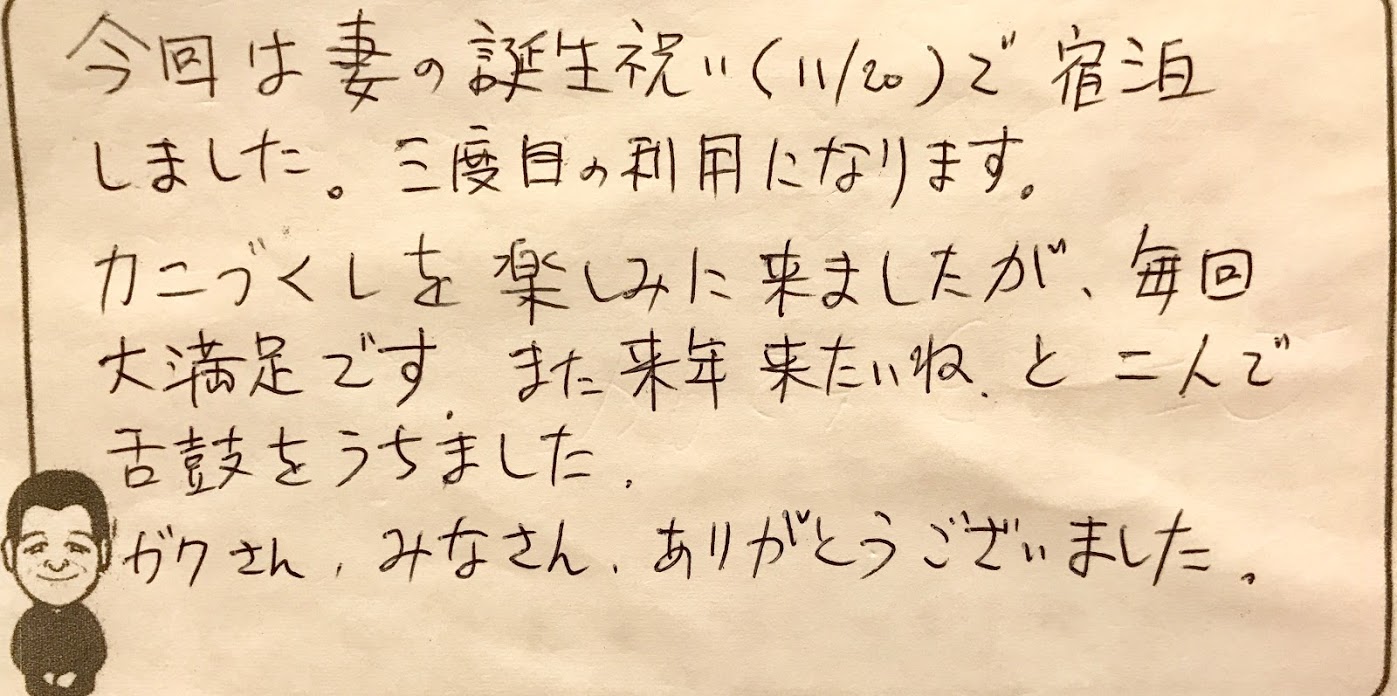 今回は妻の誕生祝い(11/20)で宿泊
しました。三度目の利用になります。
カニづくしを楽しみに来ましたが、毎回
大満足です。また来年来たいね、と二人で
舌鼓をうちました。
ガクさん、みなさん、ありがとうございました。